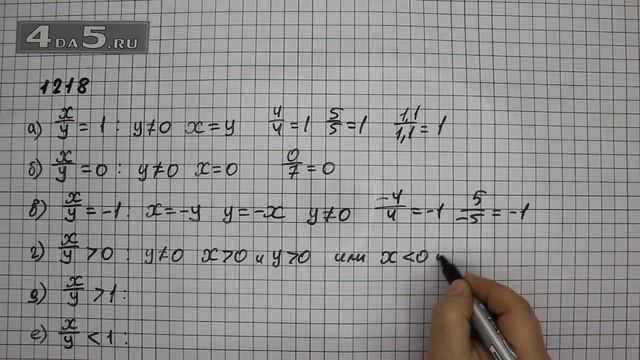 4DA5.RU
1218
а) x/y = 1 : y≠0 x=y 4/4=1 5/5=1 1,1/1,1=1
б) x/y = 0 : y≠0 x=0 0/7=0
в) x/y = -1 : x=-y y=-x y≠0 -4/4=-1 5/-5=-1
г) x/y >0 : y≠0 x>0 и y>0 или x<0 и
д) x/y >1 :
е) x/y <1 :